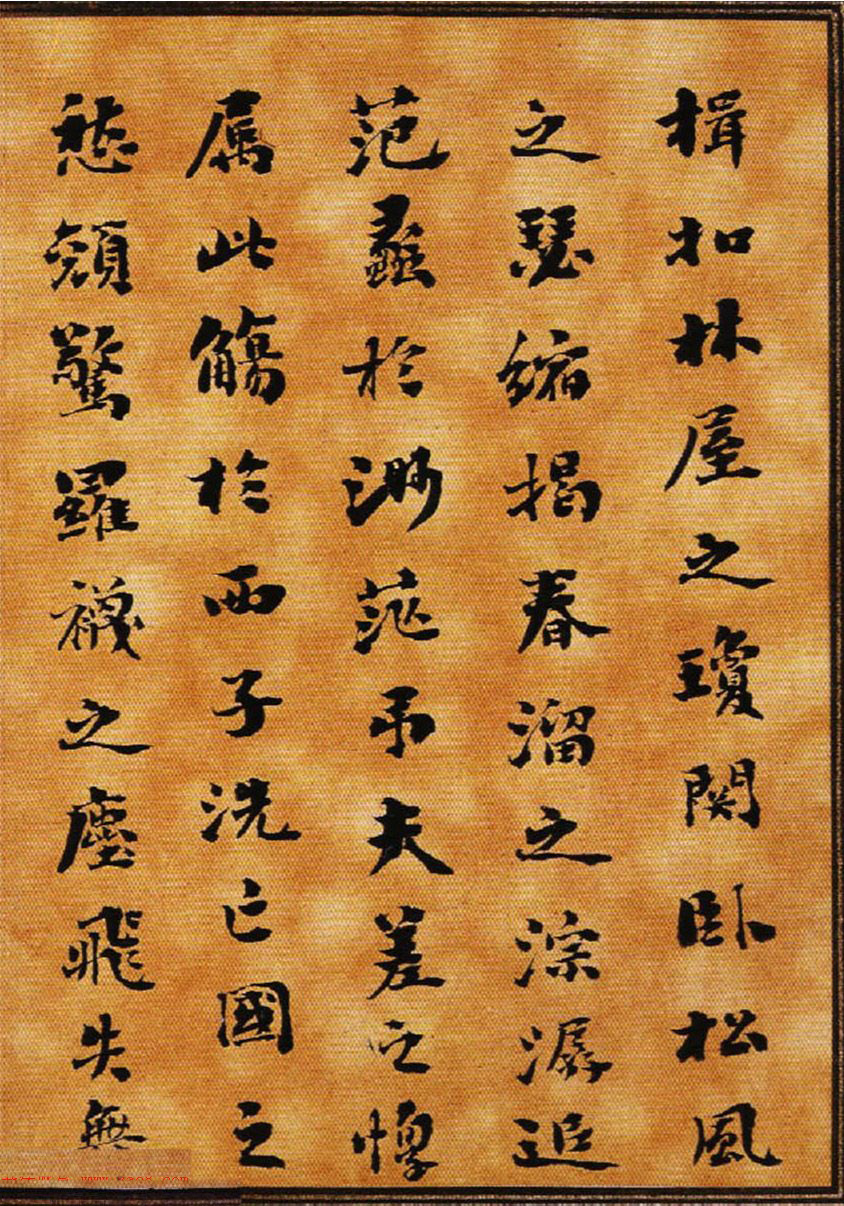 楫扣林屋之瓊関卧松風
之瑟縮揭春溜之淙潺追
范蠡於渺茫吊夫差之惸
属此觴於西子洗亡國之
愁顔驚羅襪之塵飛失無